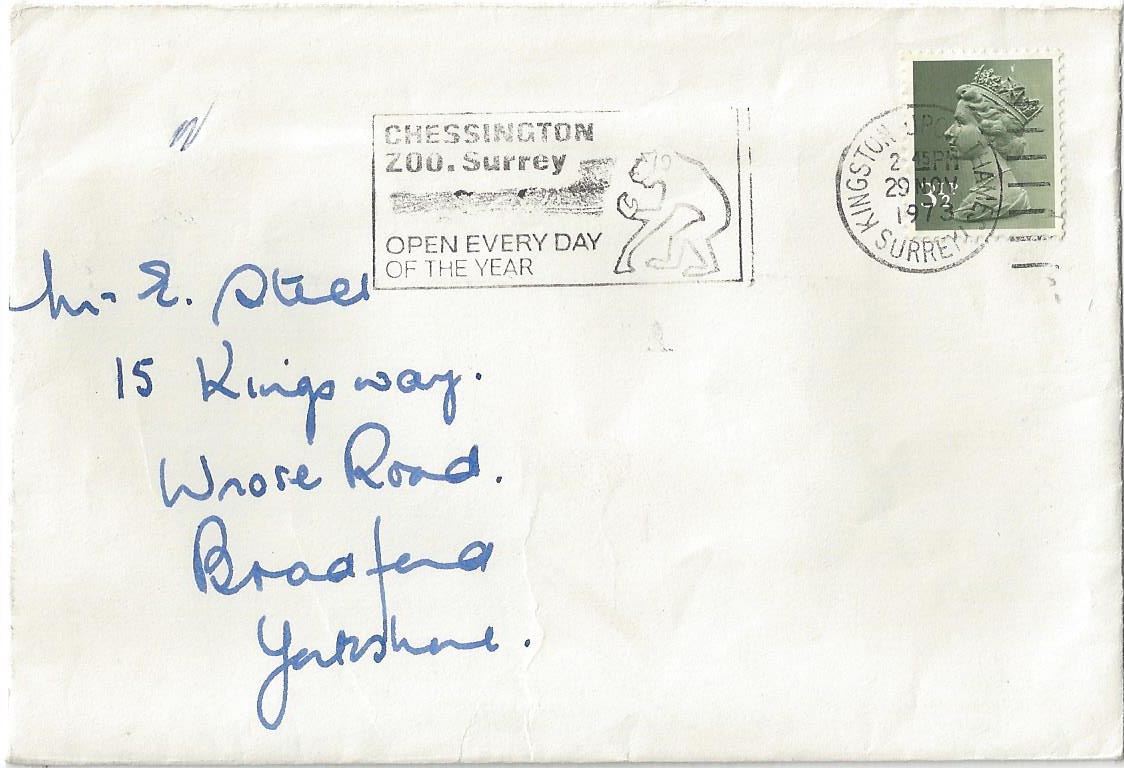 CHESSINGTON
ZOO. Surrey
OPEN EVERY DAY
OF THE YEAR
KINGSTON UPON THAMES
2 45PM
29 NOV
1973
SURREY
3½P
Mr E. Steel
15 Kingsway.
Wrose Road.
Bradford
Yorkshire.